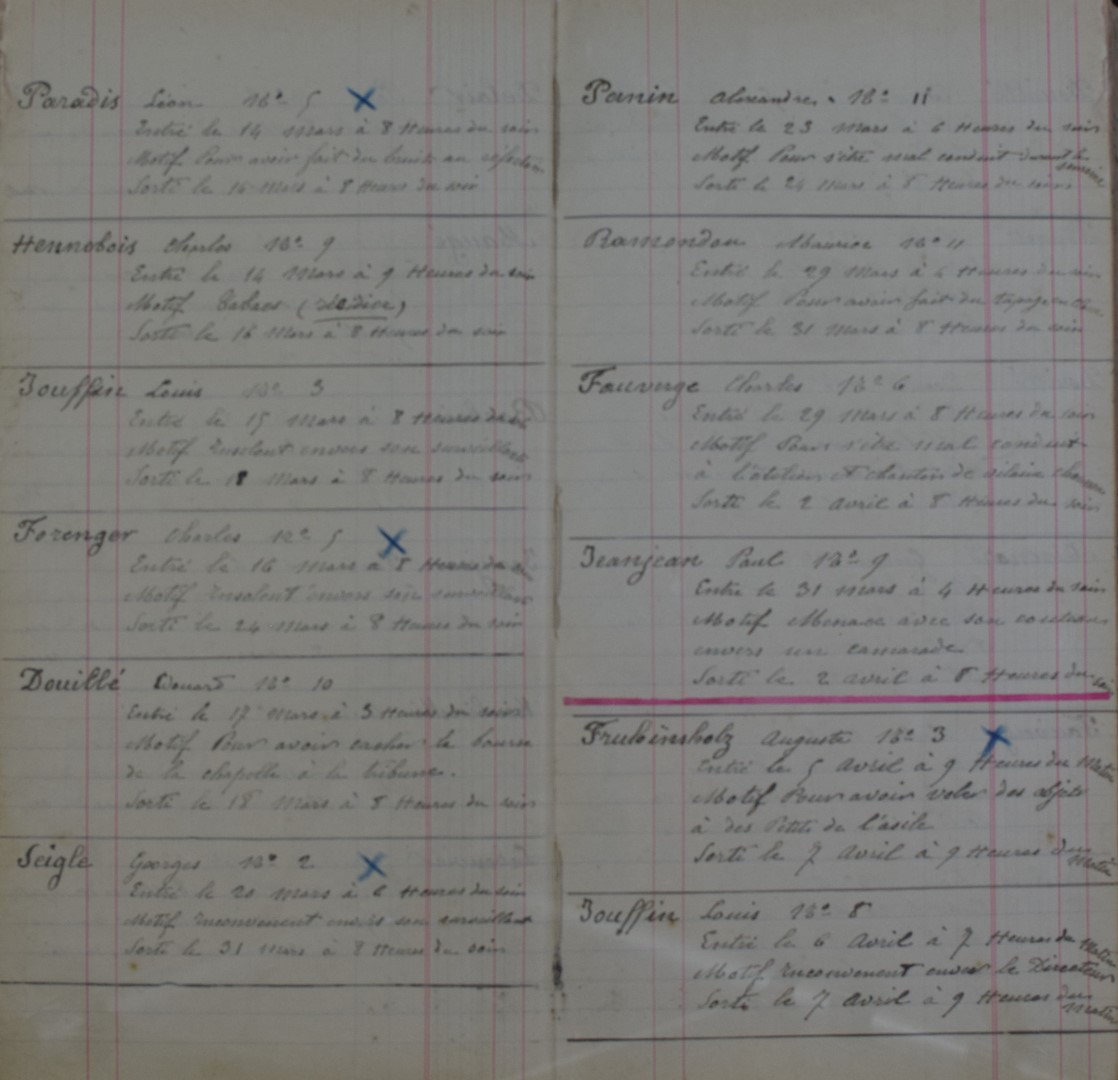 Paradis Léon 13e 5
Entré le 14 mars à 8 Heures du soir
Motif Pour avoir fait du bruit au réfectoire
Sorti le 16 mars à 8 Heures du soir
Hennobois Charles 13e 9
Entré le 14 mars à 9 Heures du soir
Motif Tabacs (récidive)
Sorti le 16 mars à 8 Heures du soir
Jouffin Louis 13e 3
Entré le 15 mars à 8 Heures du soir
Motif Insolent envers son surveillant
Sorti le 18 mars à 8 Heures du soir
Forenger Charles 13e 5
Entré le 16 mars à 8 Heures du soir
Motif Insolent envers son surveillant
Sorti le 24 mars à 8 Heures du soir
Douillé Edouard 13e 10
Entré le 17 mars à 3 Heures du soir
Motif Pour avoir cacher la bourse
de la chapelle à la tribune.
Sorti le 18 mars à 8 Heures du soir
Seigle Georges 13e 2
Entré le 20 mars à 6 Heures du soir
Motif Inconvenent envers son surveillant
Sorti le 31 mars à 8 Heures du soir
Panin Alexandre 13e 11
Entré le 23 mars à 6 Heures du soir
Motif Pour s'être mal conduit durant la semaine
Sorti le 24 mars à 8 Heures du soir
Ramondou Maurice 13e 11
Entré le 29 mars à 4 Heures du soir
Motif Pour avoir fait du tapage en
Sorti le 31 mars à 8 Heures du soir
Fauverge Charles 13e 6
Entré le 29 mars à 8 Heures du soir
Motif Pour s'être mal conduit
à l'atelier et chanton de
Sorti le 2 avril à 8 Heures du soir
Jeanjean Paul 13e 9
Entré le 31 mars à 4 Heures du soir
Motif Menace avec son couteau
envers un camarade
Sorti le 2 avril à 8 Heures du soir
Fruhinsholz Auguste 13e 3
Entré le 5 Avril à 9 Heures du Matin
Motif Pour avoir voler des objets
à des Petits de l'asile
Sorti le 7 Avril à 9 Heures du Matin
Jouffin Louis 13e 8
Entré le 6 Avril à 7 Heures du Matin
Motif Inconvenent envers le Directeur
Sorti le 7 Avril à 9 Heures du Matin